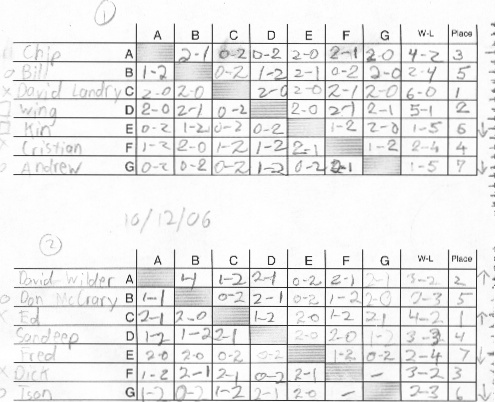 1
A B C D E F G W-L Place
Chip A 2-1 0-2 0-2 2-0 2-1 2-0 4-2 3
Bill B 1-2 0-2 1-2 2-1 0-2 2-0 2-4 5
David Landry C 2-0 2-0 2-0 2-0 2-1 2-0 6-0 1
Wing D 2-0 2-1 0-2 2-0 2-1 2-1 5-1 2
Kin E 0-2 1-2 0-2 0-2 1-2 2-0 1-5 6
Cristian F 1-2 2-0 1-2 1-2 2-1 1-2 2-4 4
Andrew G 0-2 0-2 0-2 1-2 0-2 2-1 1-5 7
10/12/06
2
A B C D E F G W-L Place
David Wilder A 1-2 2-1 0-2 2-1 2-1 3-2 2
Don McCrary B 1-1 0-2 2-1 0-2 1-2 2-0 2-3 5
Ed C 2-1 2-0 1-2 2-0 1-2 2-1 4-2 1
Sandeep D 1-2 1-2 2-1 2-0 2-0 1-2 3-3 4
Fred E 2-0 2-0 0-2 0-2 1-2 0-2 2-4 7
Dick F 1-2 2-1 2-1 0-2 2-1 – 3-2 3
Tson G 1-2 0-2 1-2 2-1 2-0 – 2-3 6